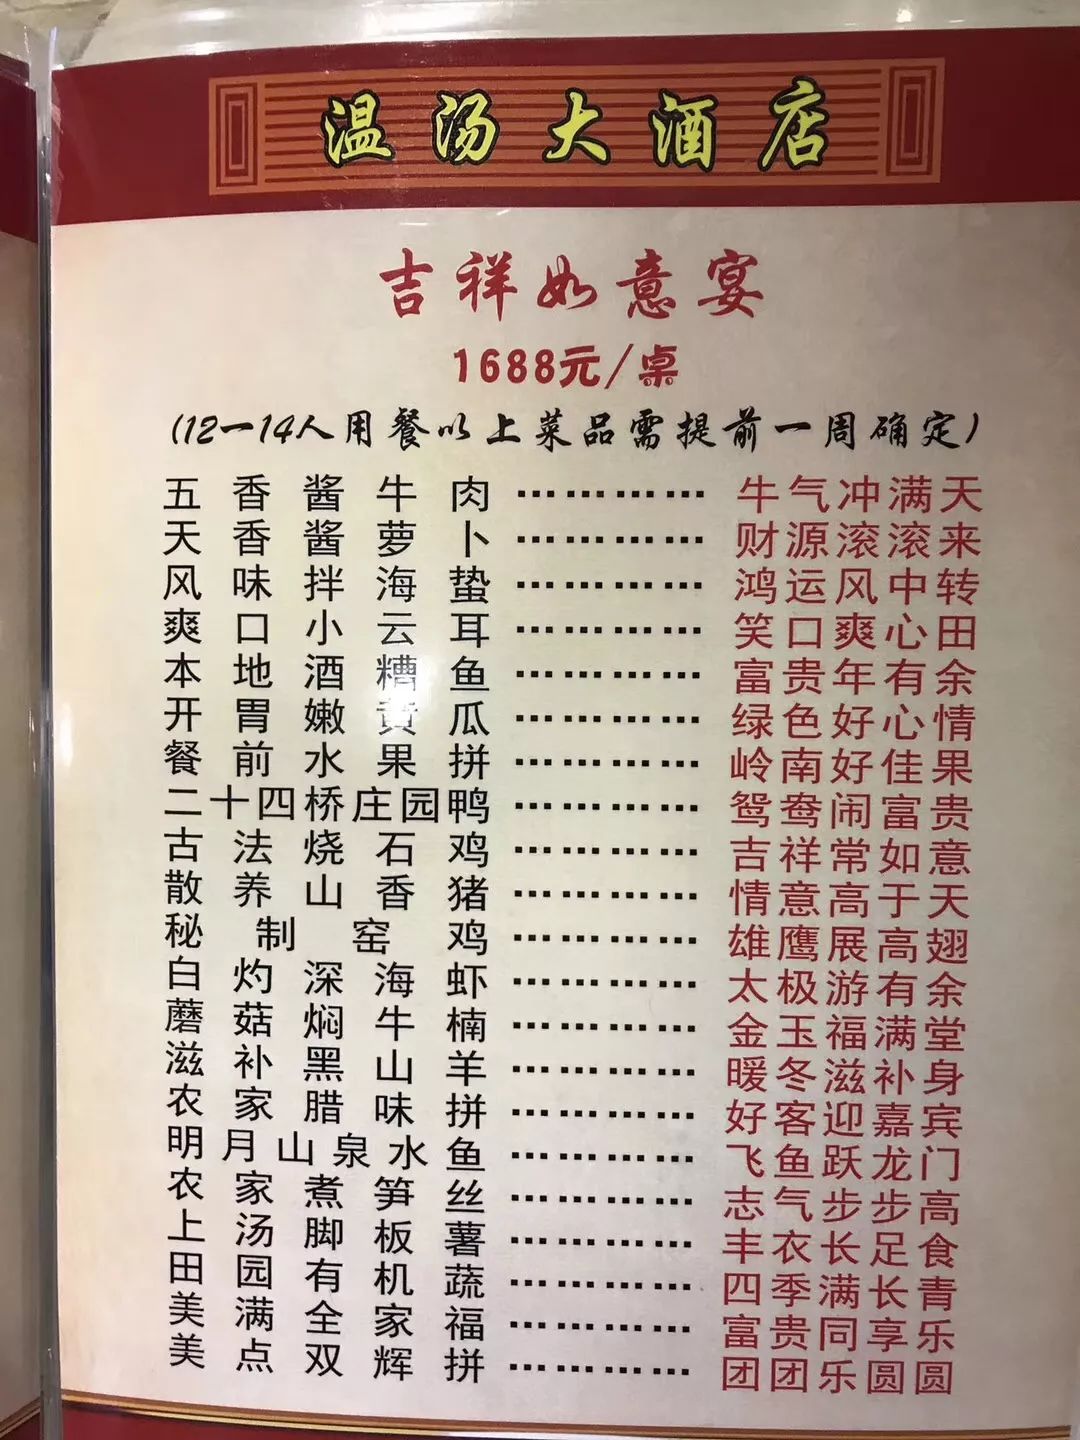 温汤大酒店
吉祥如意宴
1688元/桌
(12一14人用餐以上菜品需提前一周确定)
五香酱牛肉…………牛气冲满天
天香酱萝卜…………财源滚滚来
风味拌海蛰…………鸿运风中转
爽口小云耳…………笑口爽心田
本地酒糟鱼…………富贵年有余
开胃嫩黄瓜…………绿色好心情
餐前水果拼…………岭南好佳果
二十四桥庄园鸭…………鸳鸯闹富贵
古法烧石鸡…………吉祥常如意
散养山香猪…………情意高于天
秘制窑鸡…………雄鹰展高翅
白灼深海虾…………太极游有余
蘑菇焖牛楠…………金玉福满堂
滋补黑山羊…………暖冬滋补身
农家腊味拼…………好客迎嘉宾
明月山泉水鱼…………飞鱼跃龙门
农家煮笋丝…………志气步步高
上汤脚板薯…………丰衣长足食
田园有机蔬…………四季满长青
美满全家福…………富贵同享乐
美点双辉拼…………团团乐圆圆